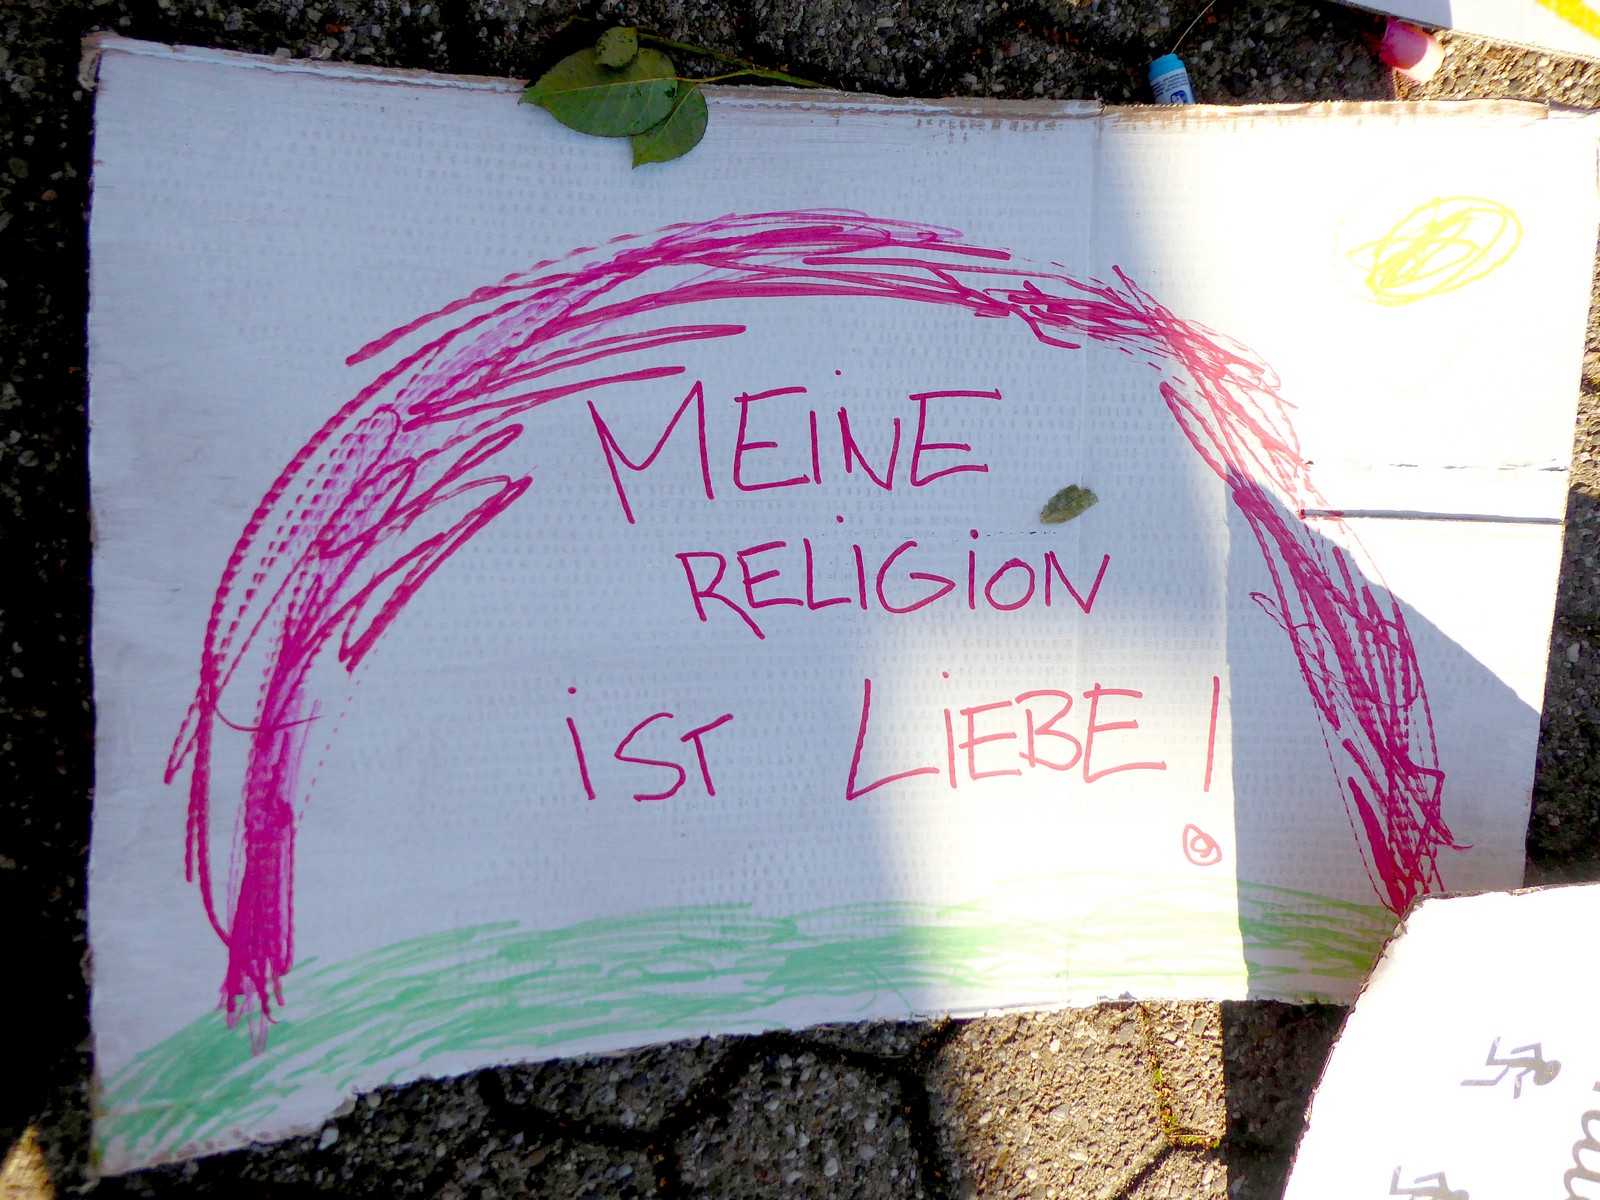 MEiNE
RELiGiON
iST LiEBE!